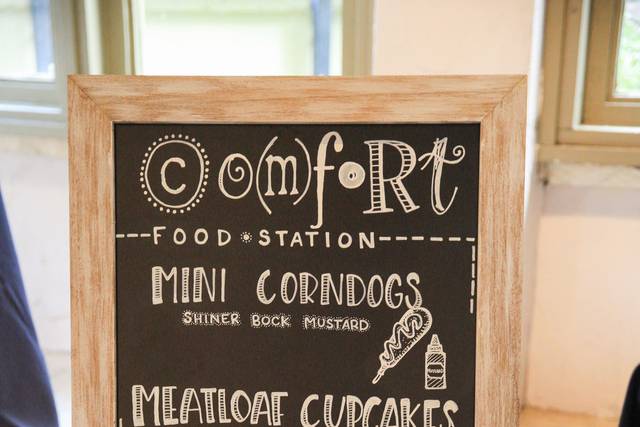 Comfort
FOOD STATION
MINI CORNDOGS
SHINER BOCK MUSTARD
MEATLOAF CUPCAKES